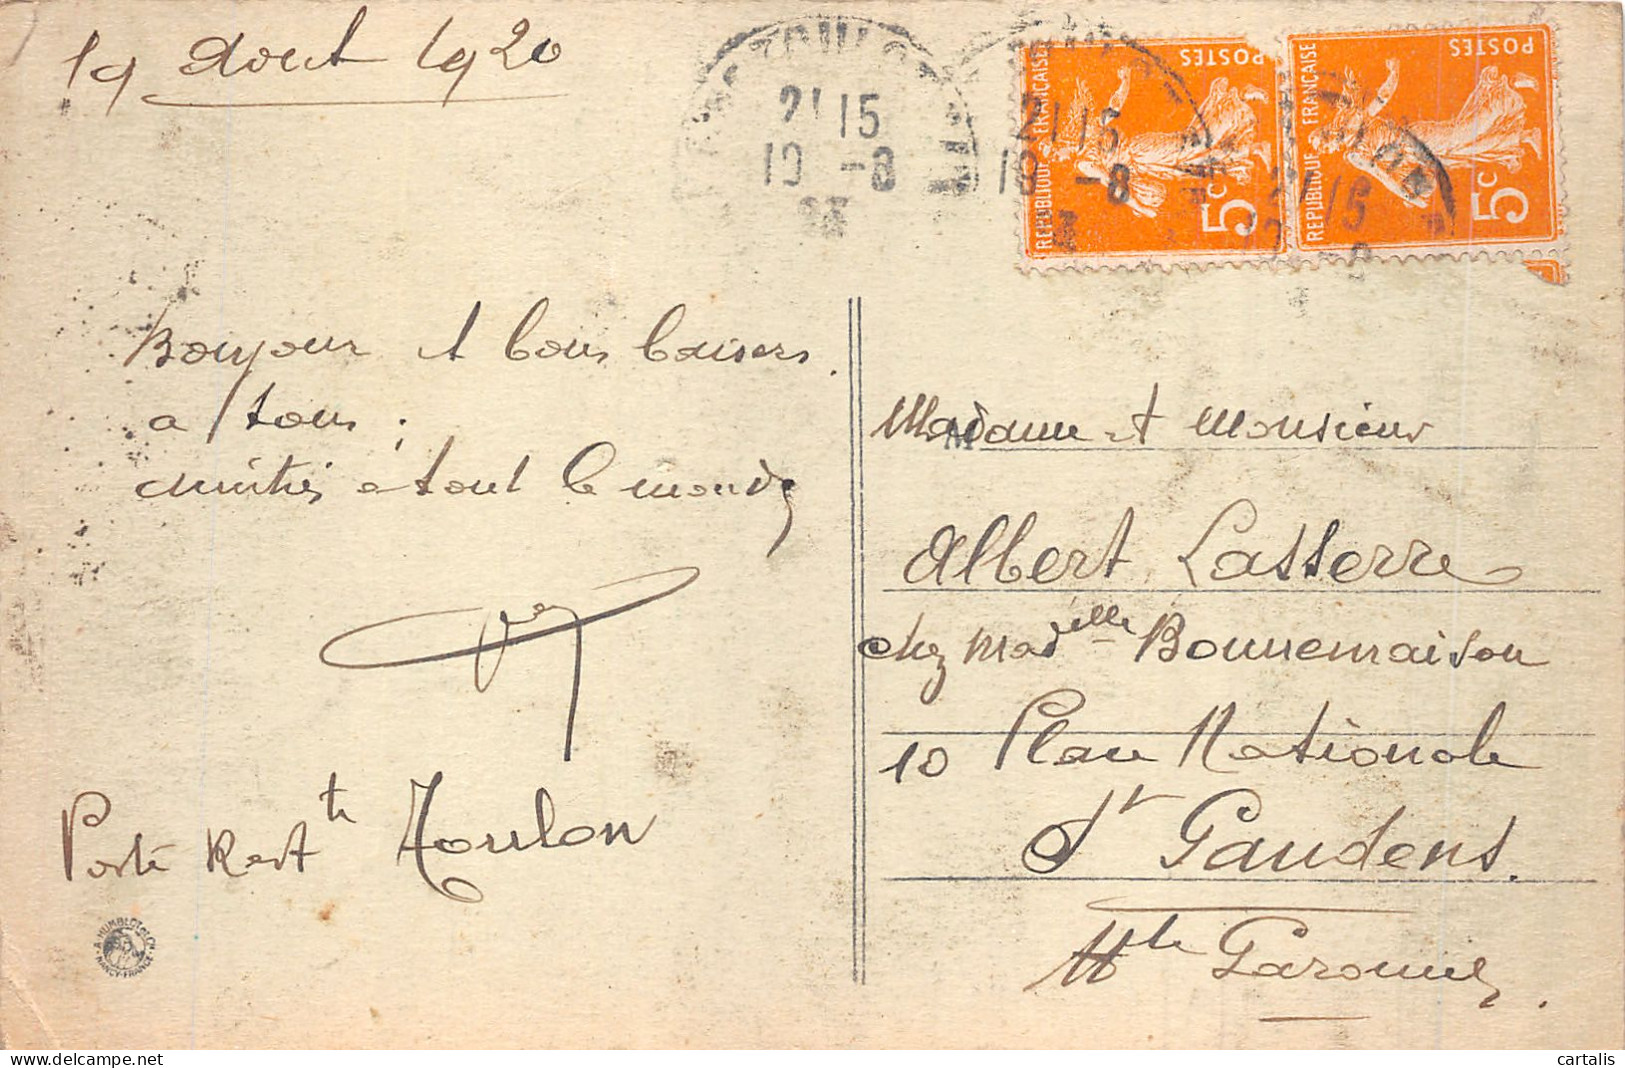 19 Aout 1920
TOULON
21 15
19 -8
23
21 15
19 -8
3
TOULON
21 15
POSTES
REPUBLIQUE FRANÇAISE
5c
POSTES
REPUBLIQUE FRANÇAISE
5c
Bonjour et bons baisers
a tous.
Amitiés a tout le monde
Poste Restte Toulon
A. HUMBLOT et Cie
NANCY-FRANCE
Madame et Monsieur
Albert Lasserre
chez Madelle Bonnemaison
10 Place Nationale
St Gaudens.
Hte Garonne.
cartalis